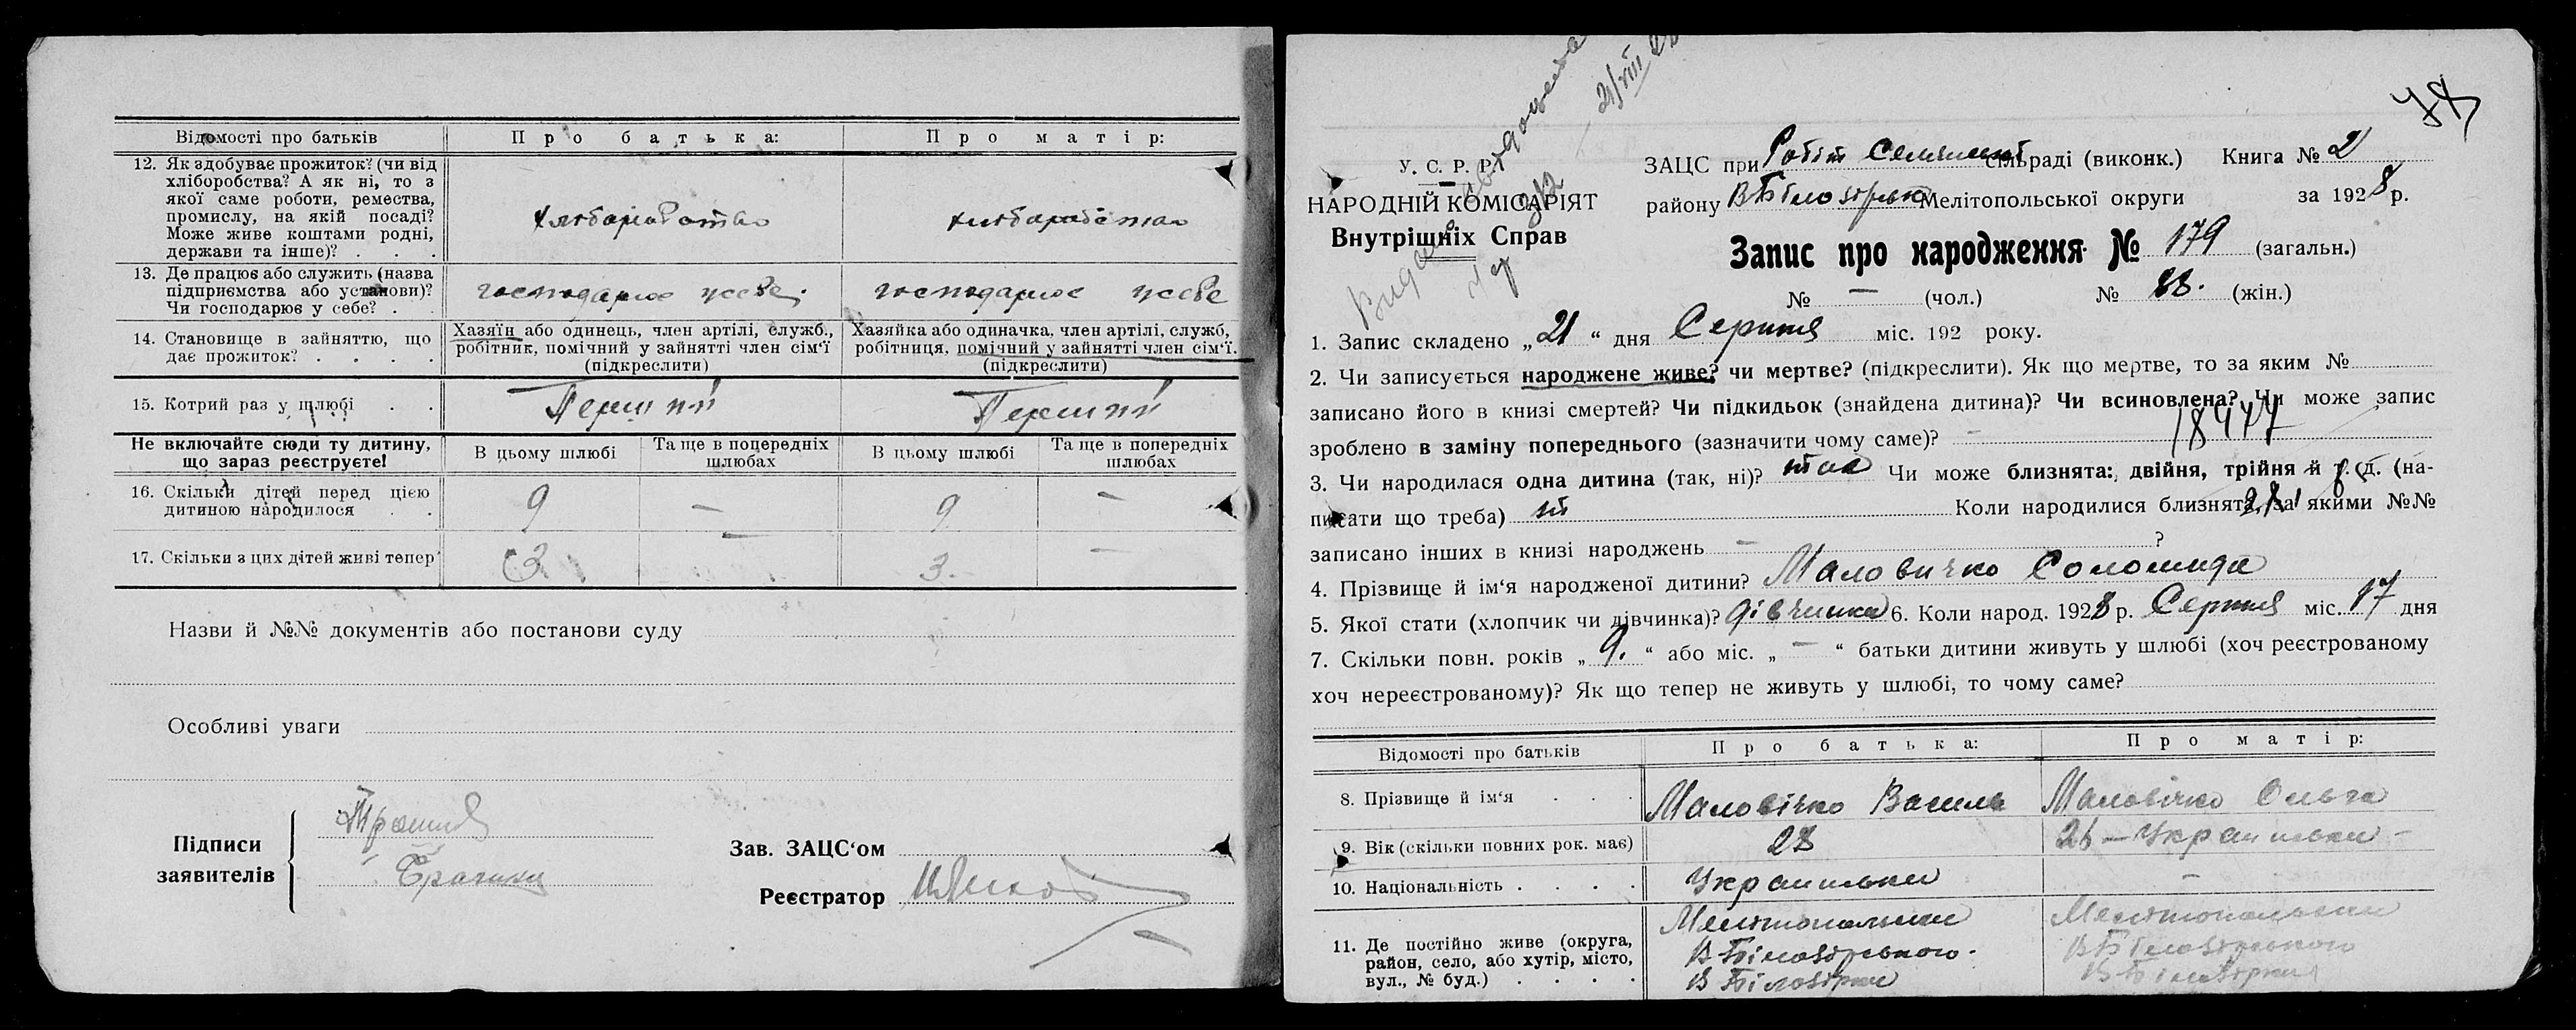 Відомості про батьків
Про батька:
Про матір:
12. Як здобуває прожиток? (чи від
хліборобства? А як ні, то з
якої саме роботи, ремества,
промислу, на якій посаді?
Може живе коштами родні,
держави та інше)? . . .
13. Де працює або служить (назва
підприємства або установи)?
Чи господарює у себе? .
господарює у себе
господарює у себе
14. Становище в зайняттю, що
дає прожиток? . . . .
Хазяїн або одинець, член артілі, служб.,
робітник, помічний у зайнятті член сім'ї
(підкреслити)
Хазяйка або одиначка, член артілі, служб,
робітниця, помічний у зайнятті член сім'ї.
(підкреслити)
15. Котрий раз у шлюбі . .
Перший
Перший
Не включайте сюди ту дитину,
що зараз реєструєте!
В цьому шлюбі
Та ще в попередніх
шлюбах
В цьому шлюбі
Та ще в попередніх
шлюбах
16. Скільки дітей перед цією
дитиною народилося . .
9 — 9 —
17. Скільки з цих дітей живі тепер
3 — 3. —
Назви й №№ документів або постанови суду
Особливі уваги
Підписи
заявителів
Зав. ЗАЦС'ом
Реєстратор
78
У. С. Р. Р.
НАРОДНІЙ КОМІСАРІЯТ
Внутрішніх Справ
21/VIII
ЗАЦС при сільраді (виконк.) Книга № 2
району В Білозірськ Мелітопольської округи за 1928 р.
Запис про народження № 179 (загальн.)
№ — (чол.) № 88. (жін.)
1. Запис складено „21“ дня Серпня міс. 192 року.
2. Чи записується народжене живе? чи мертве? (підкреслити). Як що мертве, то за яким №
записано його в книзі смертей? Чи підкидьок (знайдена дитина)? Чи всиновлена? Чи може запис
зроблено в заміну попереднього (зазначити чому саме)? —
3. Чи народилася одна дитина (так, ні)? так Чи може близнята: двійня, трійня й т. д. (на-
писати що треба) Коли народилися близнята, за якими №№
записано інших в книзі народжень — ?
4. Прізвище й ім'я народженої дитини? Маловичко Соломида
5. Якої стати (хлопчик чи дівчинка)? дівчинка 6. Коли народ. 1928 р. Серпня міс. 17 дня
7. Скільки повн. років „9.“ або міс. „—“ батьки дитини живуть у шлюбі (хоч реєстрованому
хоч нереєстрованому)? Як що тепер не живуть у шлюбі, то чому саме?
Відомості про батьків
Про батька:
Про матір:
8. Прізвище й ім'я . . .
Маловічко Василь
Маловічко Ольга
9. Вік (скільки повних рок. має)
28
26 — Украинка —
10. Національність . . . .
—
11. Де постійно живе (округа,
район, село, або хутір, місто,
вул., № буд.) . . . .
В Білозірського.
В Білозірки
В Білозірського
В Білозірки